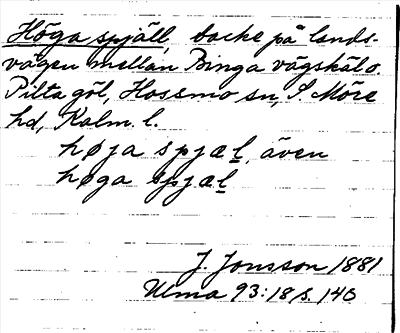 Höga spjäll, backe på lands-
vägen mellan Binga vägskäl o.
Pilta göl, Hossmo sn, S. Möre
hd, Kalm. l.
høja spjæl, även
høga spjæl
J. Jonsson 1881
Ulma 93:18 s. 140